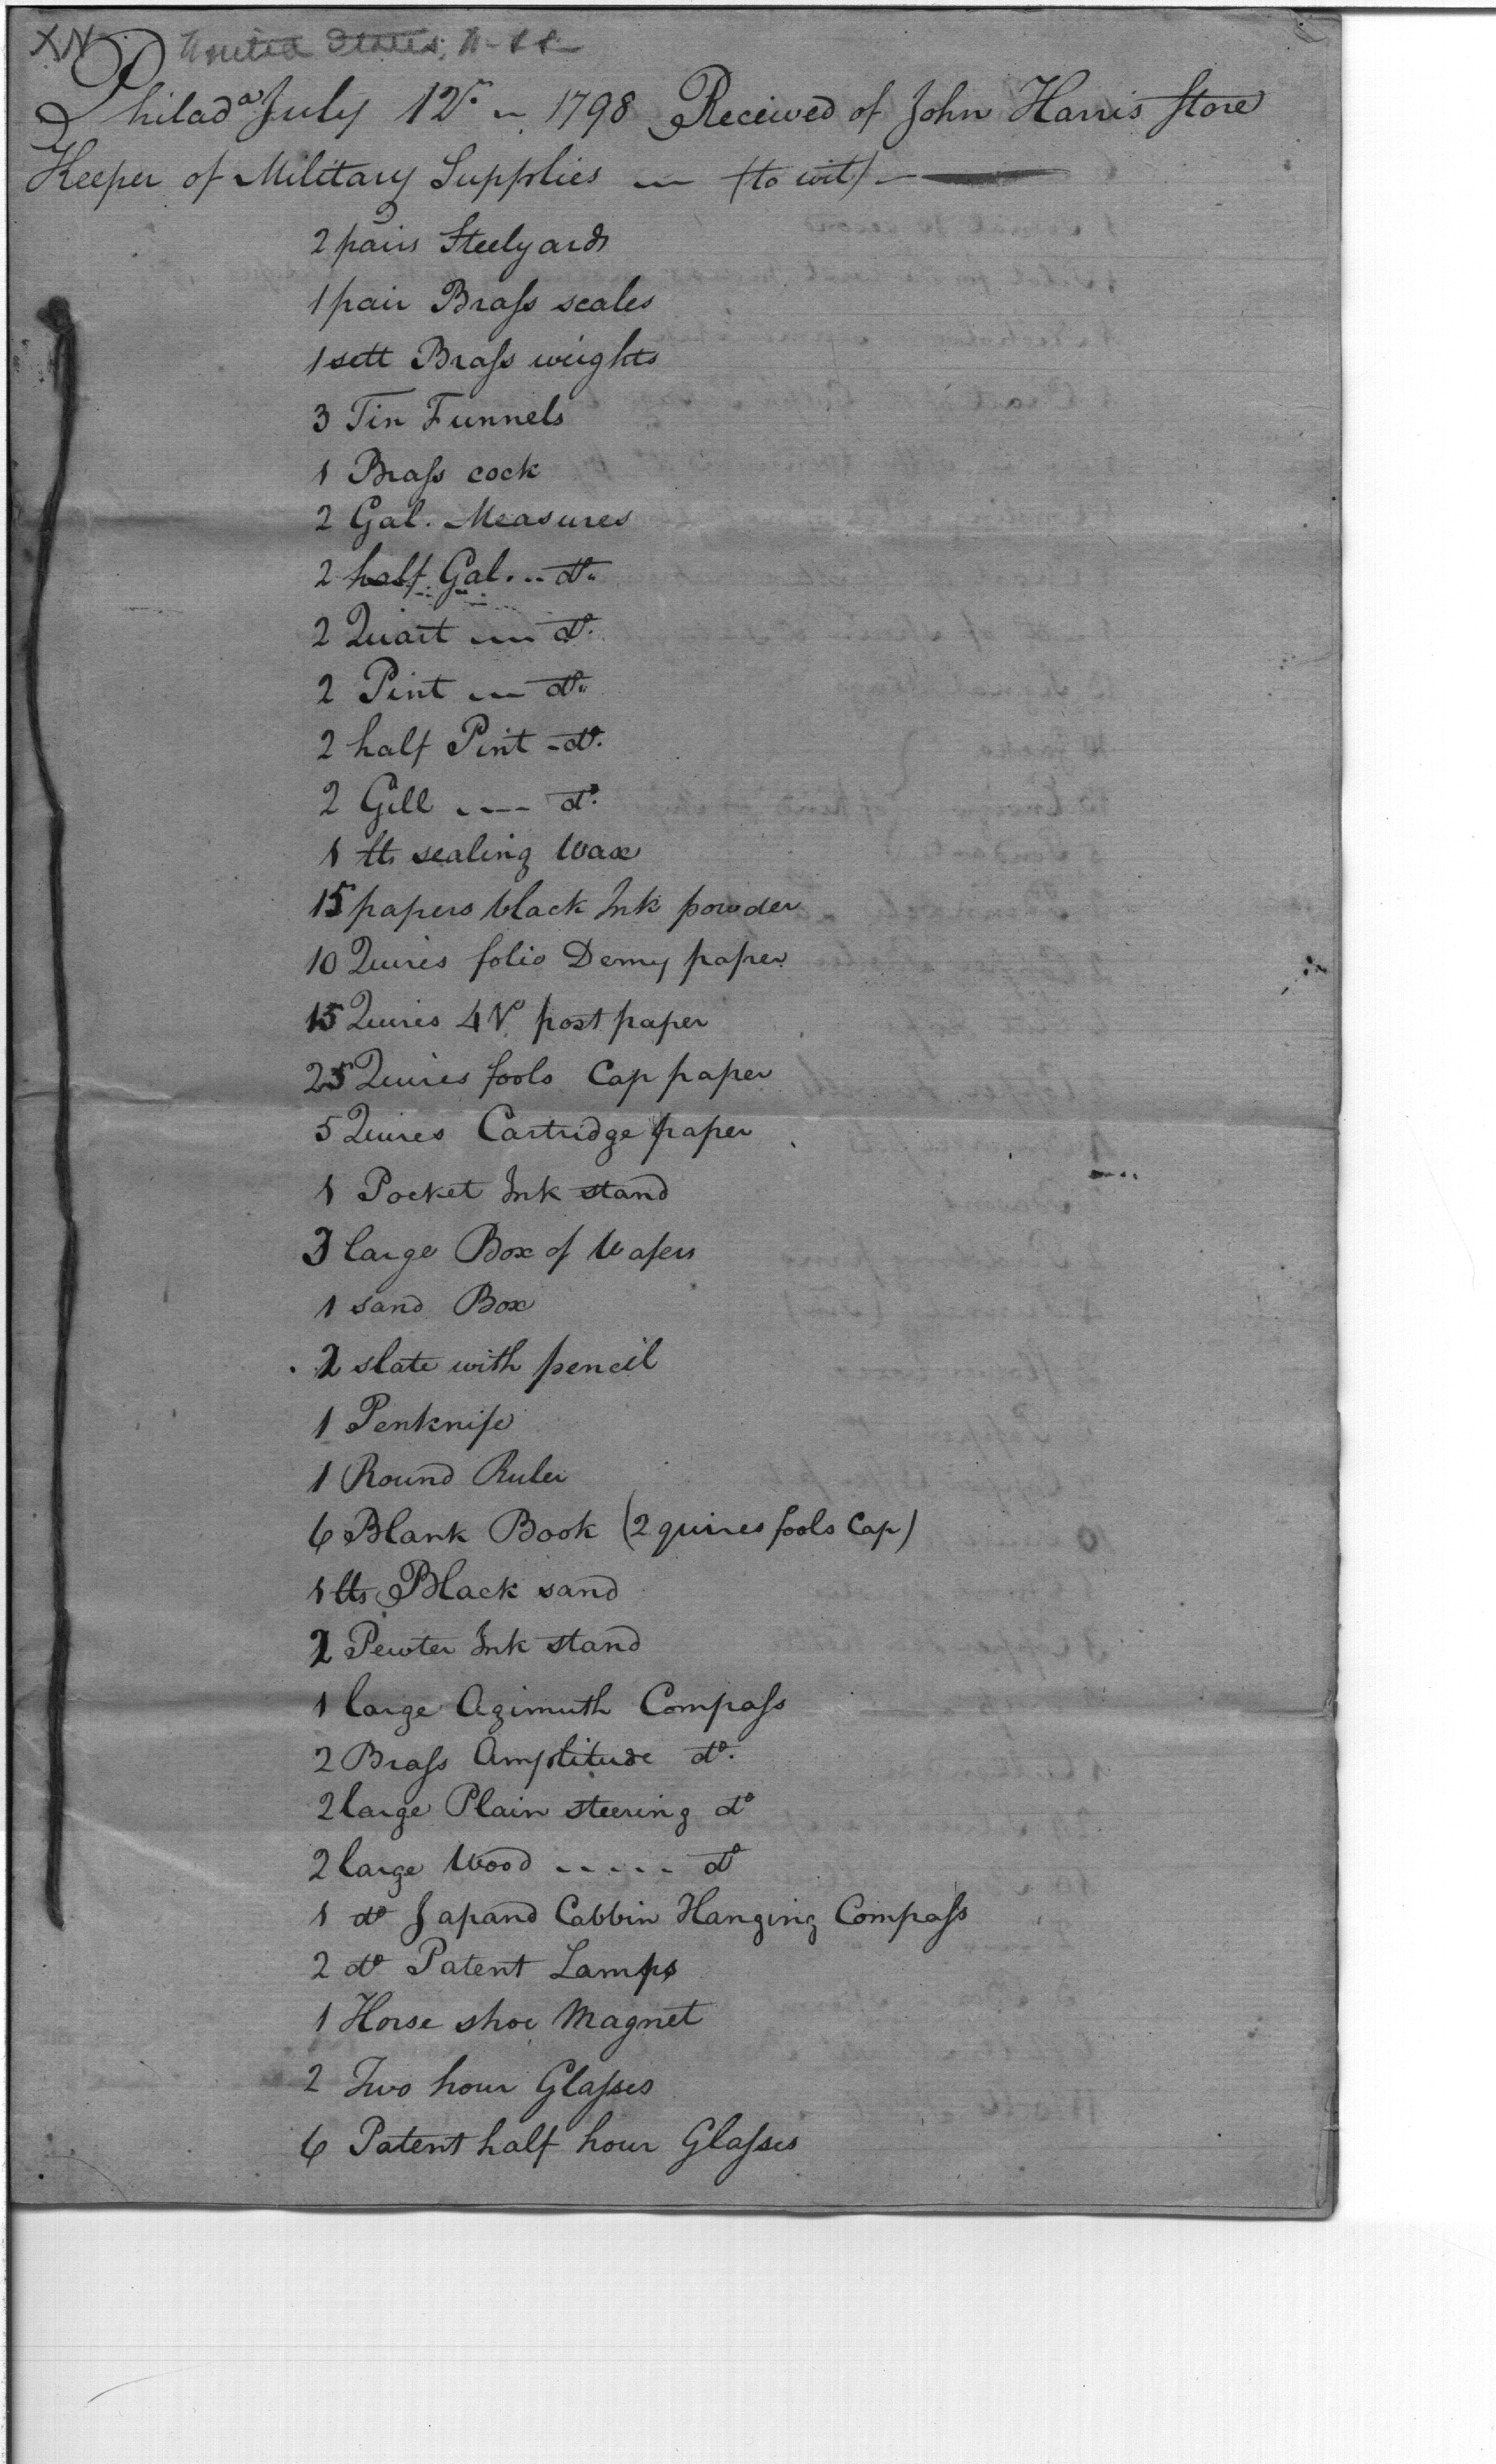 XN. United States, A-SS-
Philad.a July 12th 1798 Received of John Harris Store
Keeper of Military Supplies — (to wit) —
2 pairs Steelyards
1 pair Brass scales
1 sett Brass weights
3 Tin Funnels
1 Brass cock
2 Gal. Measures
2 half Gal. .. do.
2 Quart — do.
2 Pint — do.
2 half Pint - do.
2 Gill ---- do.
1 lb sealing Wax
15 papers black Ink powder
10 Quires folio Demy paper
15 Quires 4to post paper
25 Quires fools Cap paper
5 Quires Cartridge paper
1 Pocket Ink stand
3 large Box of Wafers
1 sand Box
2 slate with pencil
1 Penknife
1 Round Ruler
6 Blank Book (2 quires fools Cap)
1 lb Black sand
2 Pewter Ink stand
1 large Azimuth Compass
2 Brass Amplitude do.
2 large Plain steering do
2 large Wood ----- do
1 do Japand Cabbin Hanging Compass
2 do Patent Lamps
1 Horse shoe Magnet
2 Two hour Glasses
6 Patent half hour Glasses